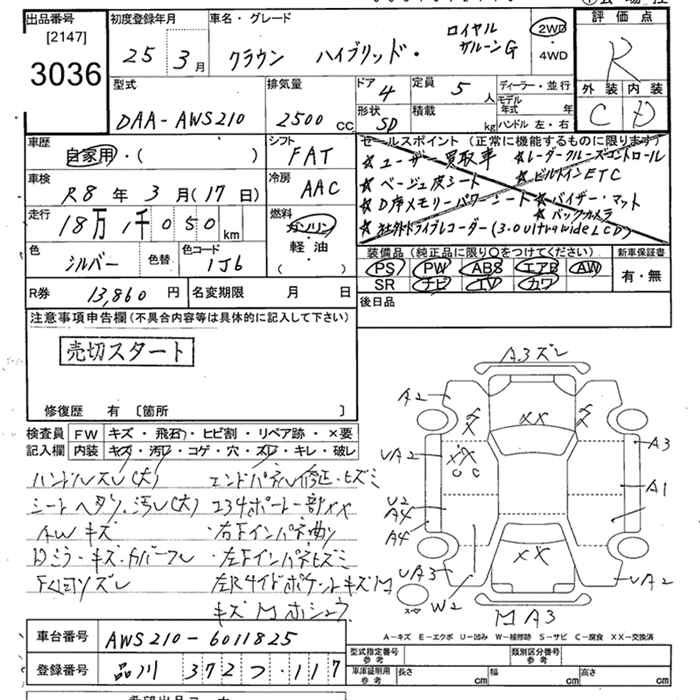 出品番号
[2147]
3036
初度登録年月
25 3月
車名・グレード
クラウン ハイブリッド・
ロイヤル
サルーンG
2WD
・
4WD
評価点
R
外装 内装
C D
型式
DAA-AWS210
排気量
2500 CC
ドア
4
定員
5 人
形状
SD
積載
kg
ディーラー・並行
モデル
年式 年
ハンドル 左・右
車歴
自家用・( )
シフト
FAT
車検
R8 年 3 月(17 日)
冷房
AAC
走行
18万 1千 050 km
燃料
ガソリン
軽・油
( )
色
シルバー
色替
色コード
1J6
セールスポイント (正常に機能するものに限ります)
☆ユーザー買取車 ☆レーダークルーズコントロール
☆ベージュ皮シート ☆ビルトインETC
☆D席メモリーパワーシート ☆バイザー・マット
☆バックカメラ
☆社外ドライブレコーダー(3.0ultrawideLCD)
装備品 (純正品に限り○をつけてください)
PS PW ABS エアB AW
SR ナビ TV カワ
新車保証書
有・無
R券 13,860 円
名変期限 月 日
後日品
注意事項申告欄(不具合内容等は具体的に記入して下さい)
売切スタート
修復歴 有 〔箇所 〕
検査員
記入欄
FW キズ・飛石・ヒビ割・リペア跡・×要
内装 キズ・汚レ・コゲ・穴・スレ・キレ・破レ
ハンドルスレ(大)
エンドパネル修正・ヒズミ
シートヘタリ・汚レ(大)
AWキズ
・右Fインパネ曲り
・左Fインパネヒズミ
A3ズレ
A2
XX
A3
UA2
A1
U2
A4
A4
UA3
W2
UA2
XX
MA3
スペアー
A-キズ E-エクボ U-凹み W-補修跡 S-サビ C-腐食 XX-交換済
車台番号 AWS210-6011825
登録番号 品川 372 つ・117
型式指定番号
参考
類別区分番号
参考
車庫証明用
参考
長さ cm
幅 cm
高さ cm